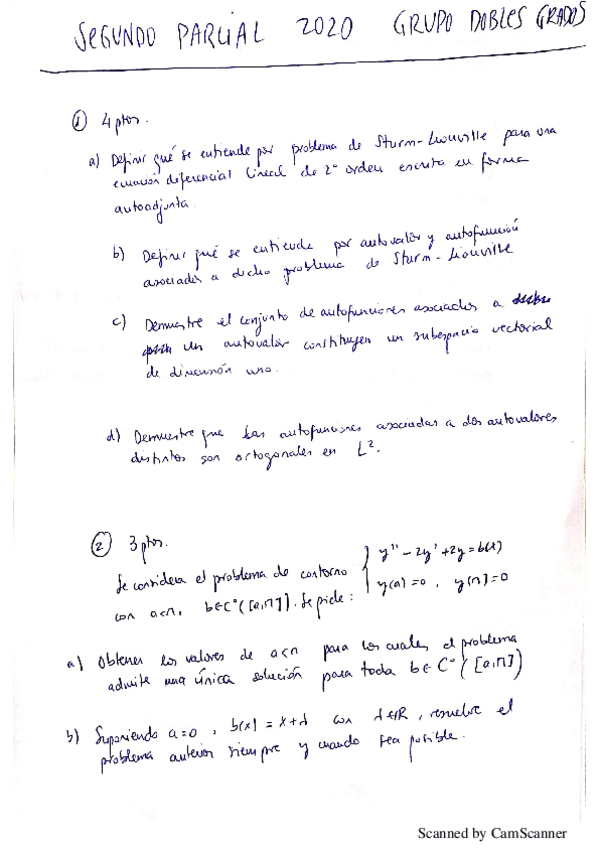 SEGUNDO PARCIAL 2020 GRUPO DOBLES GRADOS
① 4 ptos.
a) Definir qué se entiende por problema de Sturm-Liouville para una
ecuación diferencial lineal de 2º orden escrita en forma
autoadjunta.
b) Definir qué se entiende por autovalor y autofunción
asociados a dicho problema de Sturm-Liouville
c) Demuestre el conjunto de autofunciones asociados a
un autovalor constituyen un subespacio vectorial
de dimensión uno.
d) Demuestre que las autofunciones asociadas a dos autovalores
distintos son octogonales en L².
② 3 ptos.
Se considera el problema de contorno { y'' - 2y' + 2y = b(x)
y(a) = 0, y(π) = 0
con a<π, b∈C⁰([a,π]). Se pide:
a) Obtener los valores de a<π para los cuales el problema
admite una única solución para toda b∈C⁰([a,π])
b) Suponiendo a=0, b(x) = x+λ con λ∈ℝ, resuelve el
problema anterior siempre y cuando sea posible.
Scanned by CamScanner